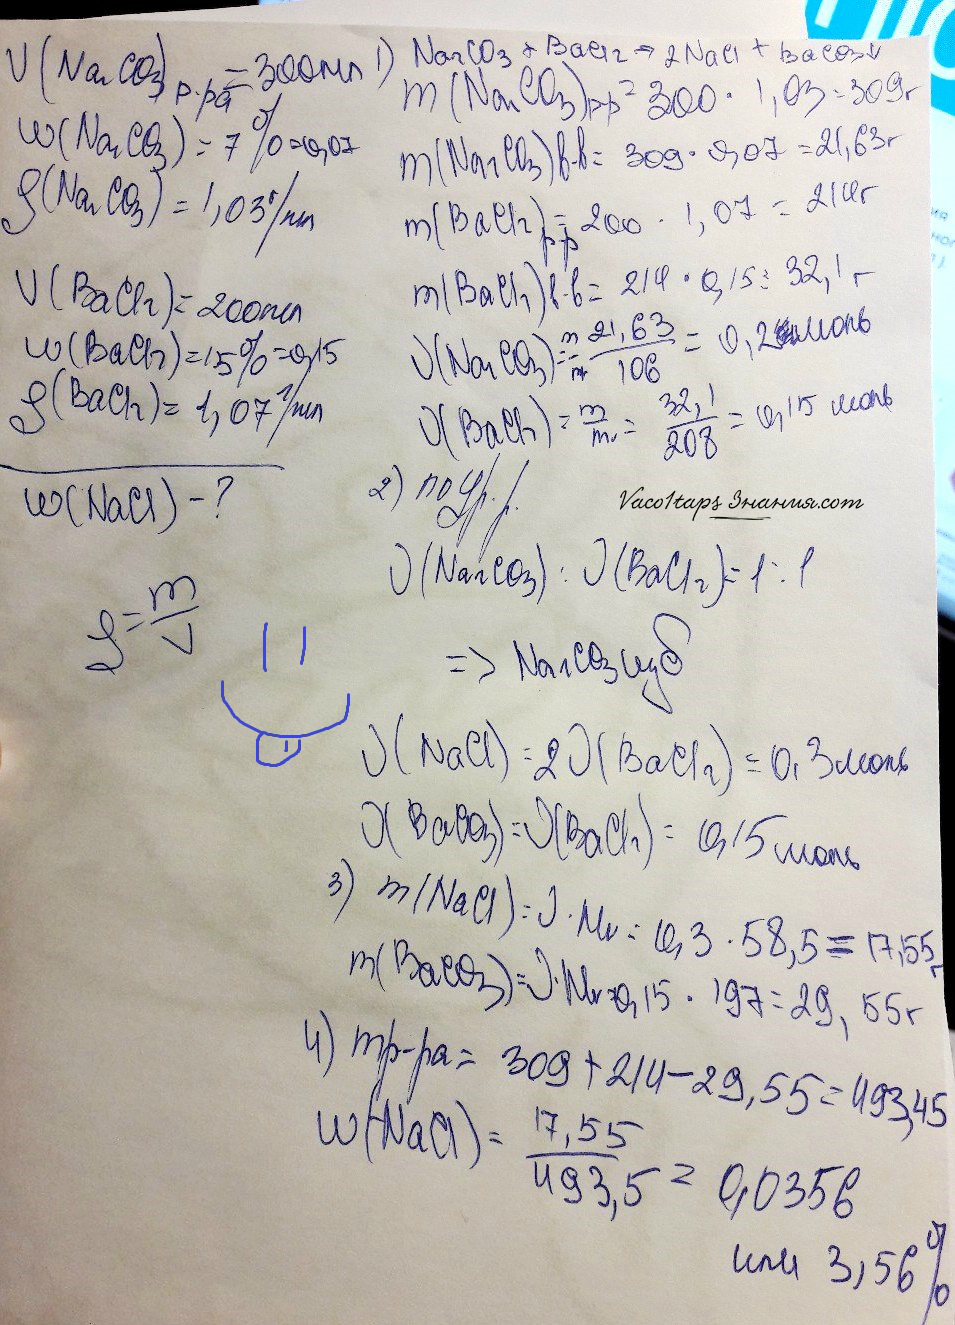 V(Na₂CO₃)р-ра = 300мл
w(Na₂CO₃) = 7% = 0,07
ρ(Na₂CO₃) = 1,03г/мл
V(BaCl₂) = 200мл
w(BaCl₂) = 15% = 0,15
ρ(BaCl₂) = 1,07г/мл
w(NaCl) - ?
ρ = m/V
1) Na₂CO₃ + BaCl₂ → 2NaCl + BaCO₃↓
m(Na₂CO₃)р-р = 300 · 1,03 = 309г
m(Na₂CO₃)в-в = 309 · 0,07 = 21,63г
m(BaCl₂)р-р = 200 · 1,07 = 214г
m(BaCl₂)в-в = 214 · 0,15 = 32,1г
ν(Na₂CO₃) = m/Mr = 21,63/106 = 0,2 моль
ν(BaCl₂) = m/Mr = 32,1/208 = 0,15 моль
2) по ур. р.
Vaco1taps Знания.com
ν(Na₂CO₃) : ν(BaCl₂) = 1 : 1
=> Na₂CO₃ изб
ν(NaCl) = 2ν(BaCl₂) = 0,3моль
ν(BaCO₃) = ν(BaCl₂) = 0,15моль
3) m(NaCl) = ν · Mr = 0,3 · 58,5 = 17,55г
m(BaCO₃) = ν · Mr = 0,15 · 197 = 29,55г
4) mр-ра = 309 + 214 - 29,55 = 493,45
w(NaCl) = 17,55/493,5 = 0,0356
или 3,56%